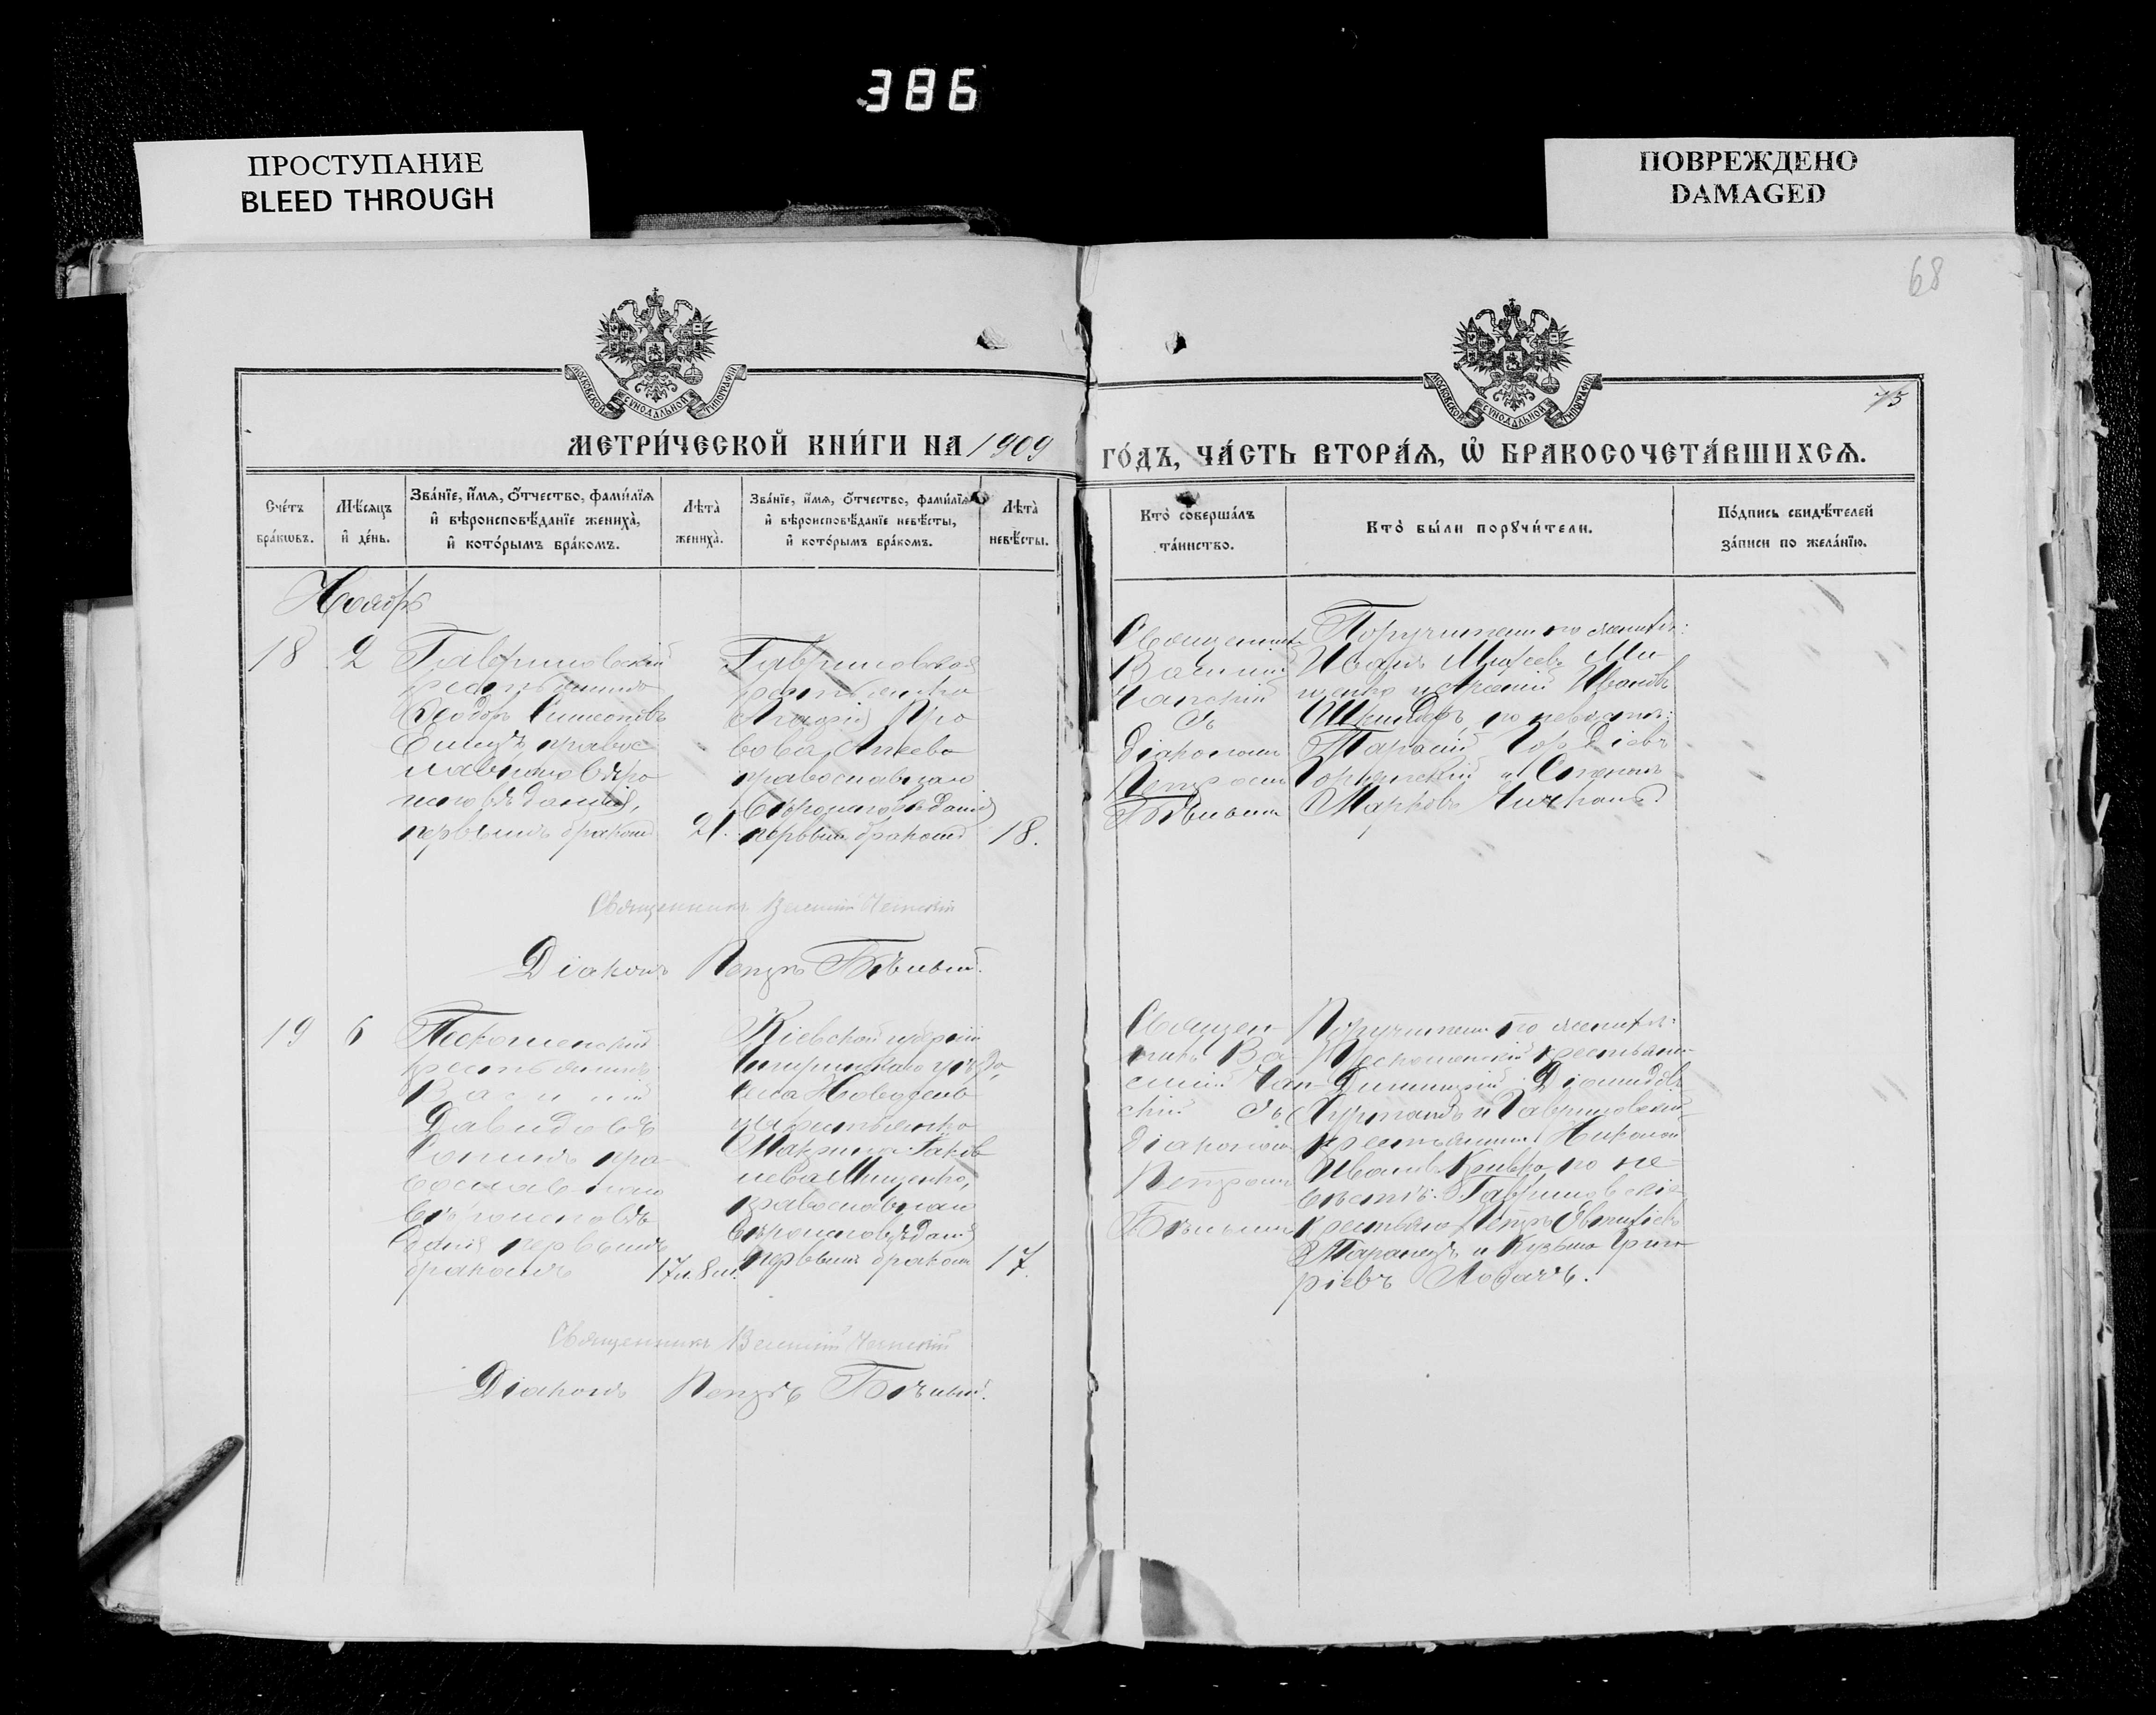 386
ПРОСТУПАНИЕ
BLEED THROUGH
ПОВРЕЖДЕНО
DAMAGED
68
МОСКОВСКОЙ СѴНОДАЛЬНОЙ ТИПОГРАФІИ
МОСКОВСКОЙ СѴНОДАЛЬНОЙ ТИПОГРАФІИ
МЕТРИ́ЧЕСКОЙ КНИ́ГИ НА 1909
ГО́ДЪ, ЧА́СТЬ ВТОРА́Ѧ, Ѡ҆ БРАКОСОЧЕТА́ВШИХСѦ.
Сче́тъ бра́кѡвъ.
Мѣ́сѧцъ и҆ де́нь.
Зва́нїе, и҆́мѧ, ѻ҆́тчество, фами́лїѧ и҆ вѣроисповѣ́данїе жениха̀, и҆ кото́рымъ бра́комъ.
Лѣта̀ жениха̀.
Зва́нїе, и҆́мѧ, ѻ҆́тчество, фами́лїѧ и҆ вѣроисповѣ́данїе невѣ́сты, и҆ кото́рымъ бра́комъ.
Лѣта̀ невѣ́сты.
Кто̀ соверша́лъ та́инство.
Кто̀ бы́ли порꙋчи́тели.
По́дпись свидѣ́телей за́писи по жела́нїю.
Ноябрь
18
2
Гавриловскій
крестьянинъ
Ѳеодоръ Симеоновъ
правос
лавнаго вѣро
исповѣданія,
первымъ бракомъ
21.
Гавриловская
крестьянка
православнаго
вѣроисповѣданія
первымъ бракомъ
18.
Священникъ
Василій
Чапскій
Съ
діакономъ
Петромъ
Бѣлымъ
Поручители по женихѣ:
Иванъ Михеевъ Ми
щенко и Ивановъ
по невѣстѣ:
Тарасій Гордіевъ
и Степанъ
Марковъ
Священникъ Василій Чапскій
Діаконъ Петръ Бѣлый.
19
6
Пескошенскій
крестьянинъ
Василій
Давидовъ
пра
вославнаго
вѣроисповѣ
данія первымъ
бракомъ
17 и 8 м.
Кіевской губерніи
Чигиринскаго уѣзда,
села Новосело
цы крестьянка
Макрина Яков
лева Мищенко,
православнаго
вѣроисповѣданія
первымъ бракомъ
17.
Священ-
никъ Ва-
силій Чап-
скій Съ
діакономъ
Петромъ
Бѣлымъ
Поручители по женихѣ:
Пескошенскій крестьянин
Димитрій Діомидовъ
и Гавриловскій
крестьянинъ Николай
Ивановъ Кривко по не-
вѣстѣ: Гавриловскіе
крестьяне Петръ Евтихіевъ
Таранецъ и Кузьма Григо
ріевъ Лобачъ.
Священникъ Василій Чапскій
Діаконъ Петръ Бѣлый.